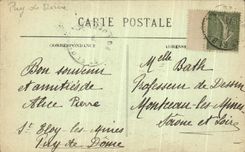 Puy de Dôme
CARTE POSTALE
CORRESPONDANCE
ADRESSE
Bon souvenir
et amitiés de
Alice Pierre
St Eloy les Mines
Puy de Dôme
Melle Bath
Professeur de Dessin
Montceau les Mines
Saone et Loire